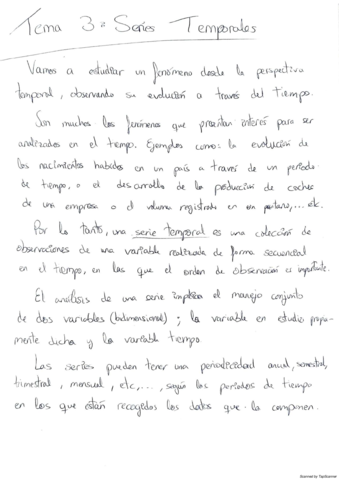 Tema 3: Series Temporales
Vamos a estudiar un fenómeno desde la perspectiva
temporal, observando su evolución a través del tiempo.
Son muchos los fenómenos que presentan interés para ser
analizados en el tiempo. Ejemplos como: la evolución de
los nacimientos habidos en un país a través de un período
de tiempo, o el desarrollo de la producción de coches
de una empresa o el volumen registrado en un pantano,... etc.
Por lo tanto, una serie temporal es una colección de
observaciones de una variable realizada de forma secuencial
en el tiempo, en las que el orden de observación es importante.
El análisis de una serie implica el manejo conjunto
de dos variables (bidimensional); la variable en estudio propia-
mente dicha y la variable tiempo.
Las series pueden tener una periodicidad anual, semestral,
trimestral, mensual, etc,..., según los períodos de tiempo
en los que están recogidos los datos que la componen.
Scanned by TapScanner